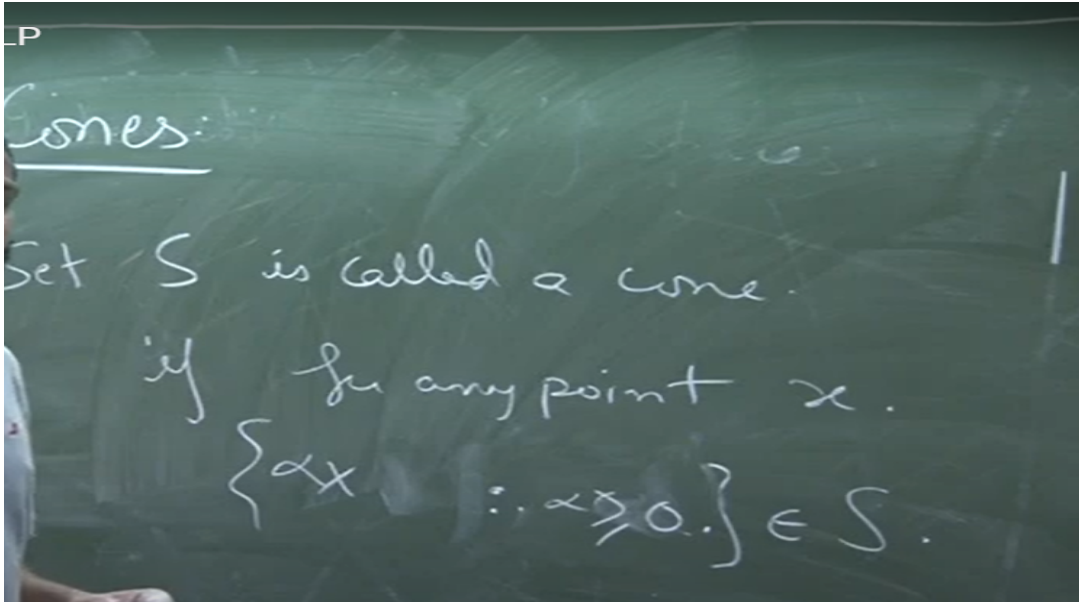 LP
Cones:
Set S is called a cone.
if for any point x.
{αx : α≥0.} ∈ S.